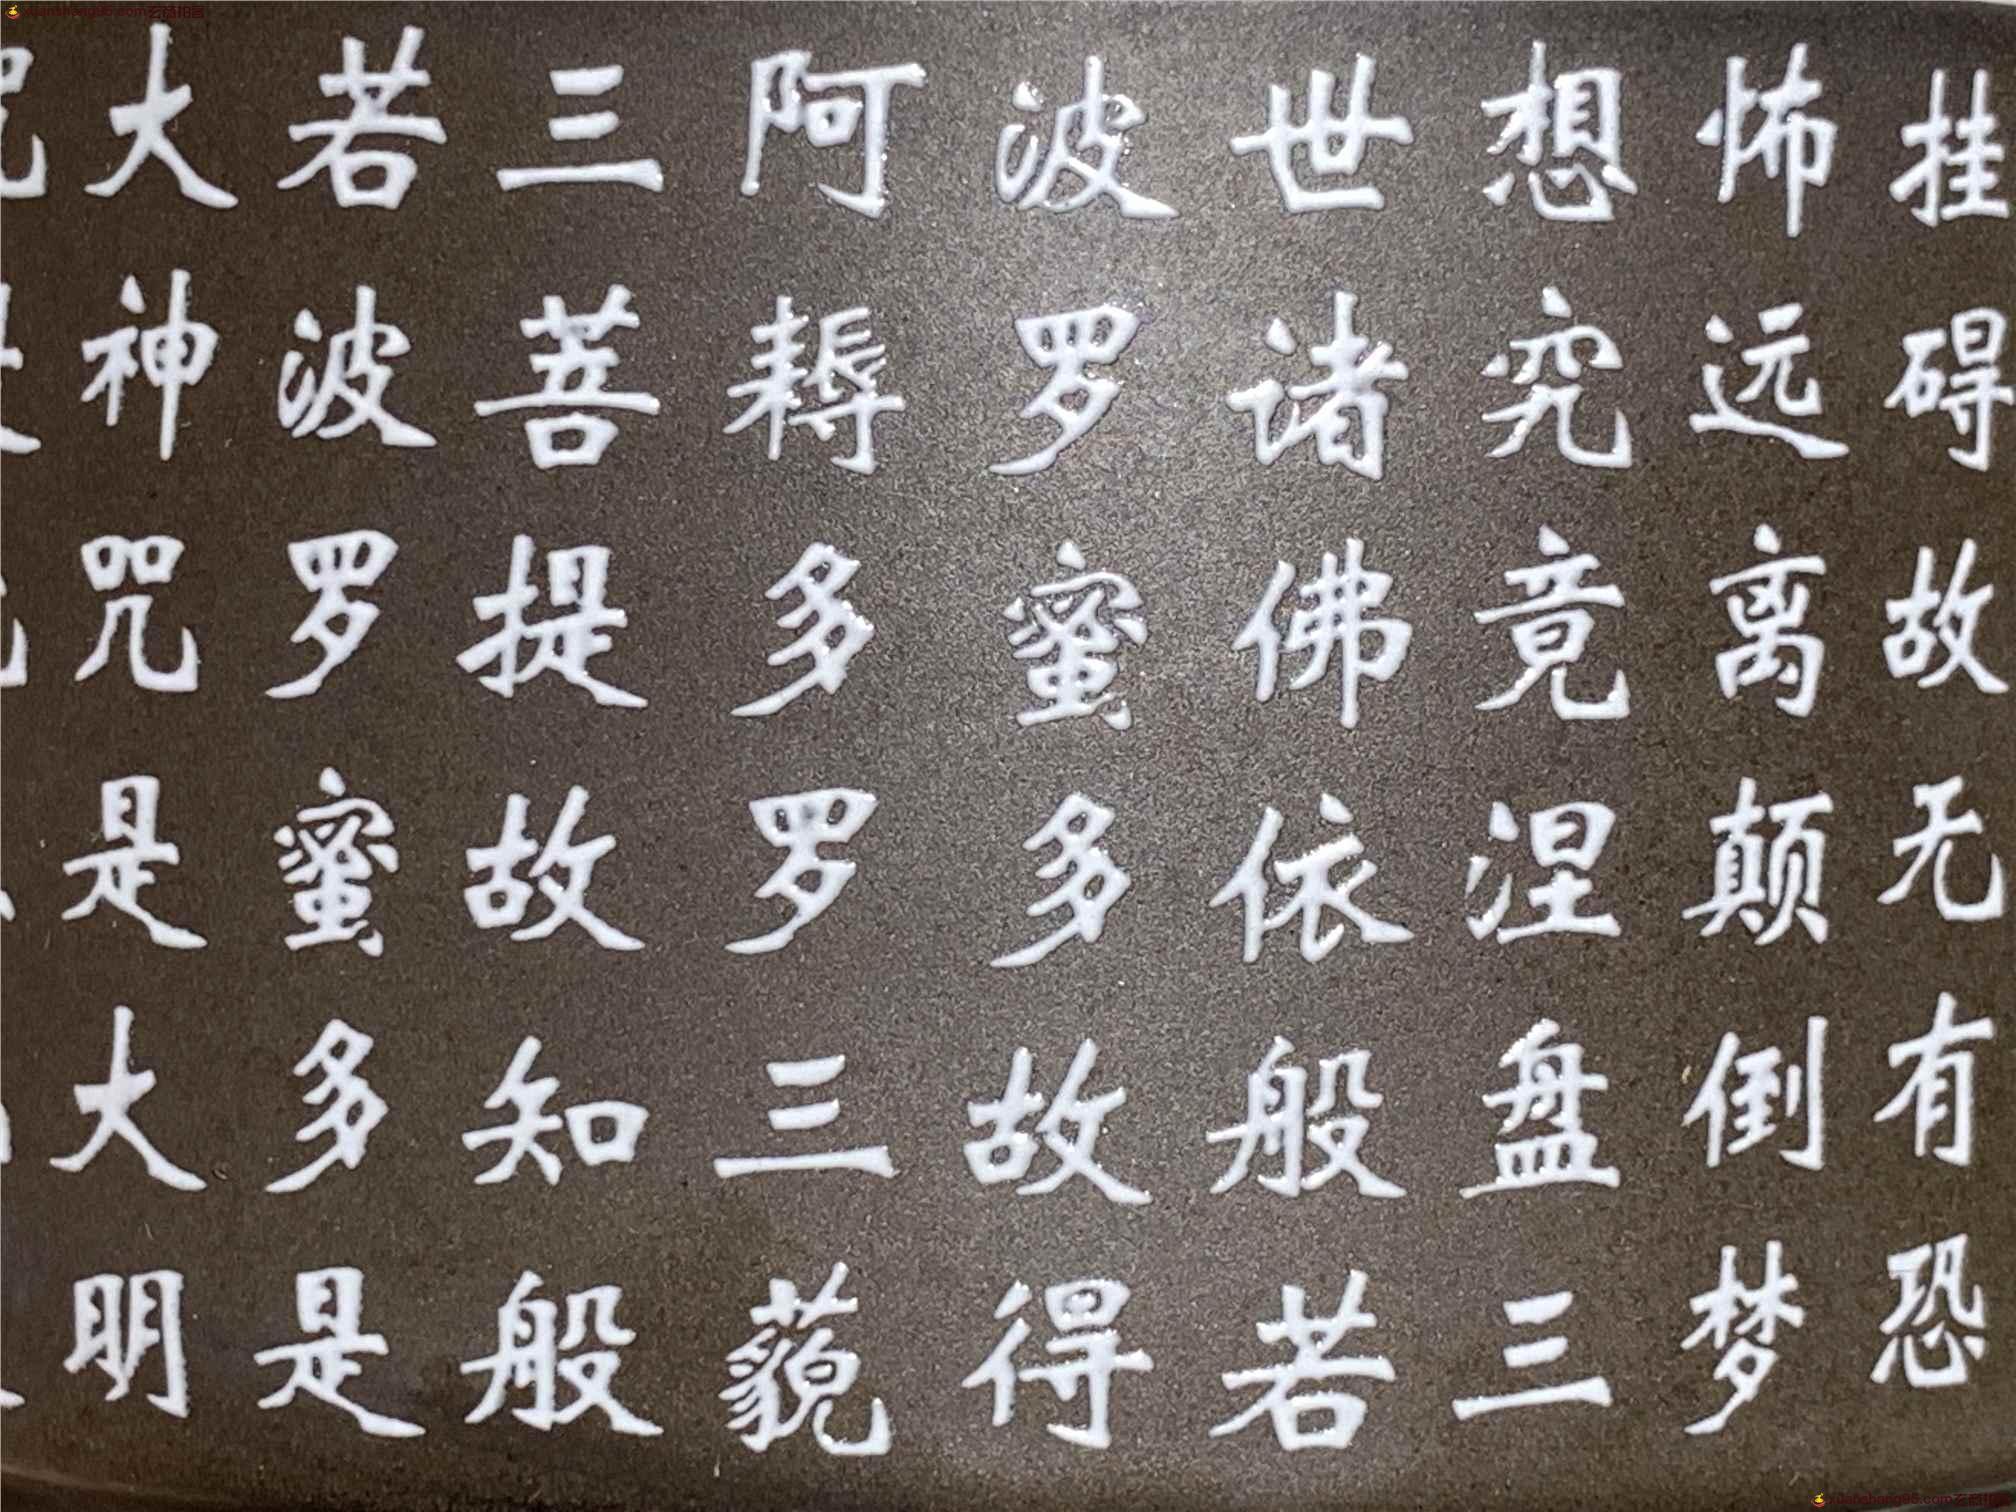 挂碍故无有恐
怖远离颠倒梦
想究竟涅盘三
世诸佛依般若
波罗蜜多故得
阿耨多罗三藐
三菩提故知般
若波罗蜜多是
大神咒是大明